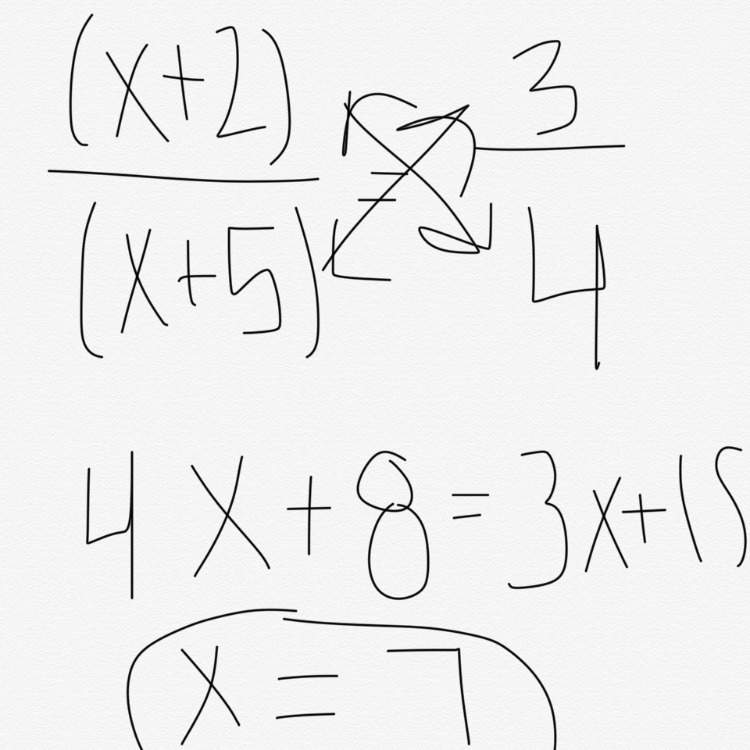 (x+2)/(x+5) = 3/4
4x+8=3x+15
x=7